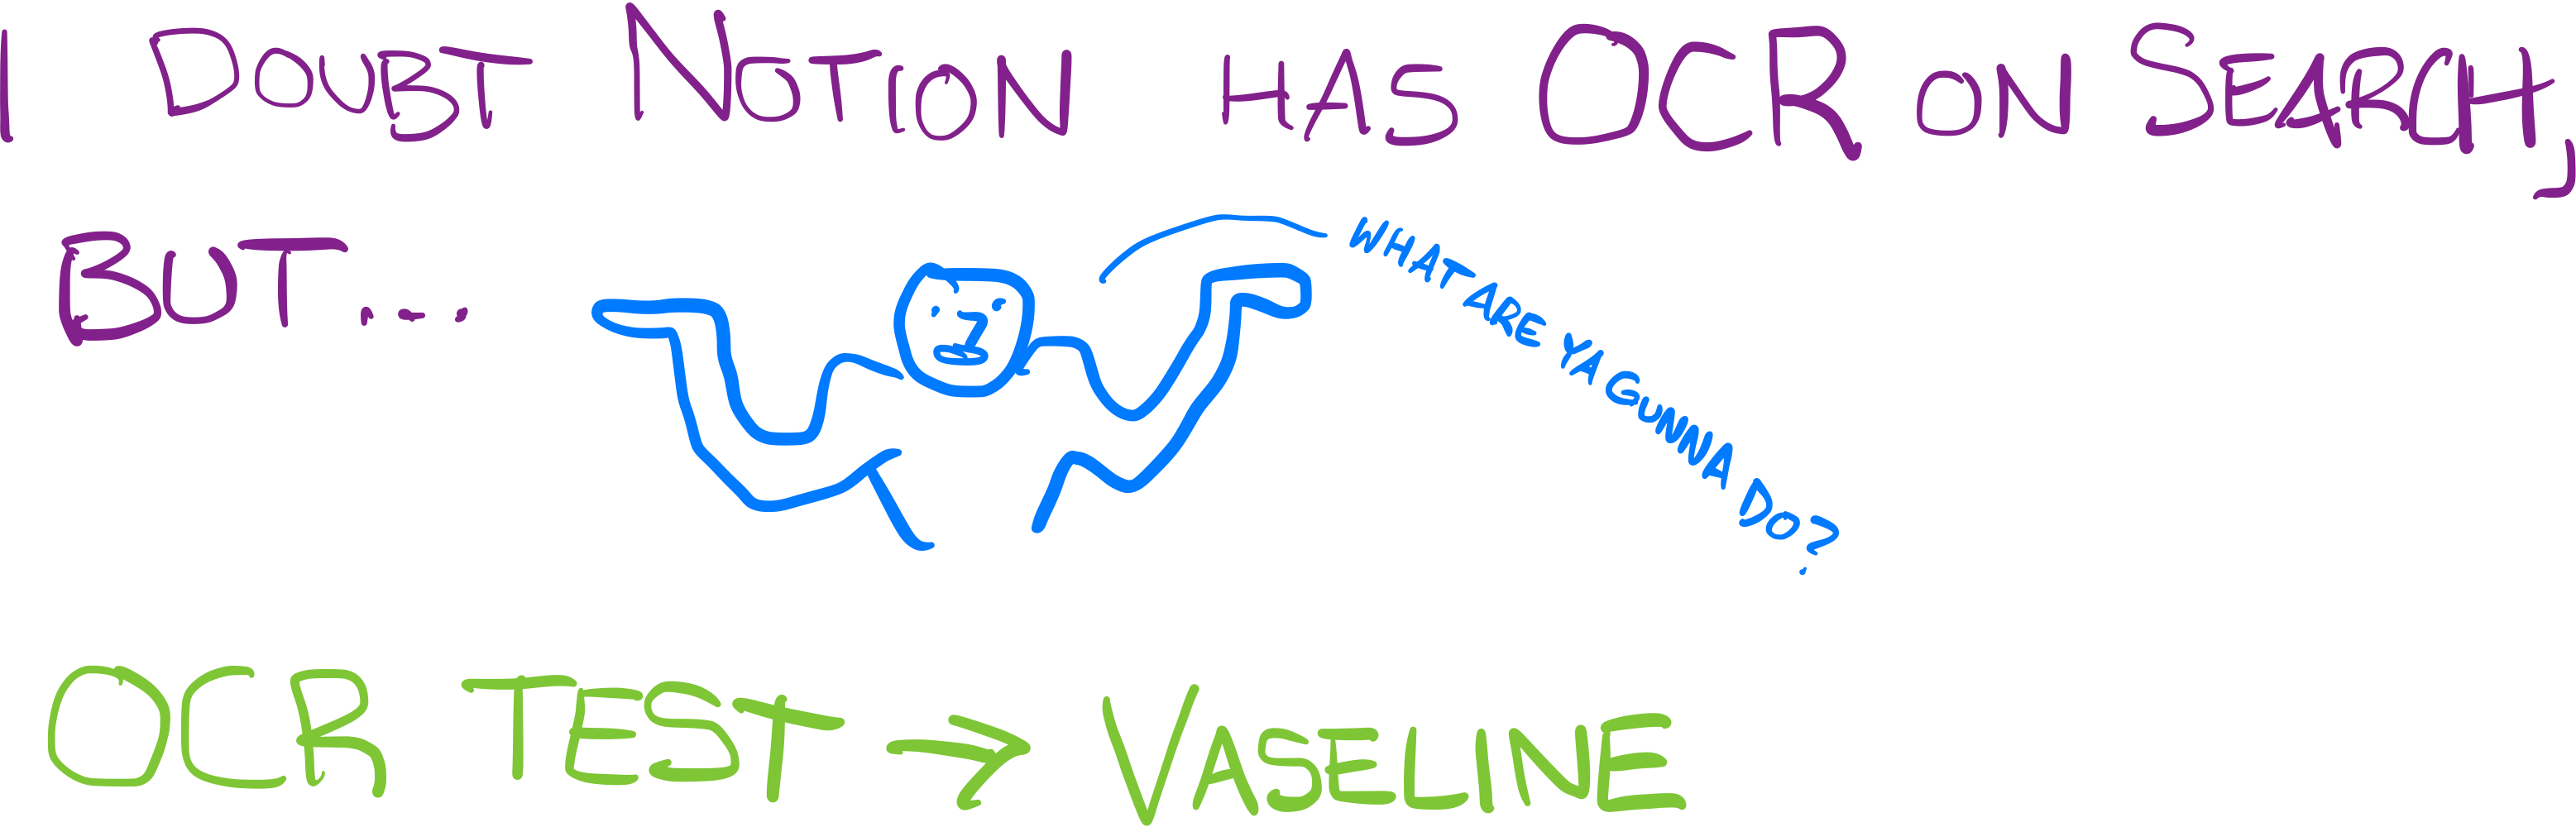 I DOUBT NOTION HAS OCR ON SEARCH,
BUT...
WHAT ARE YA GUNNA DO?
OCR TEST → VASELINE